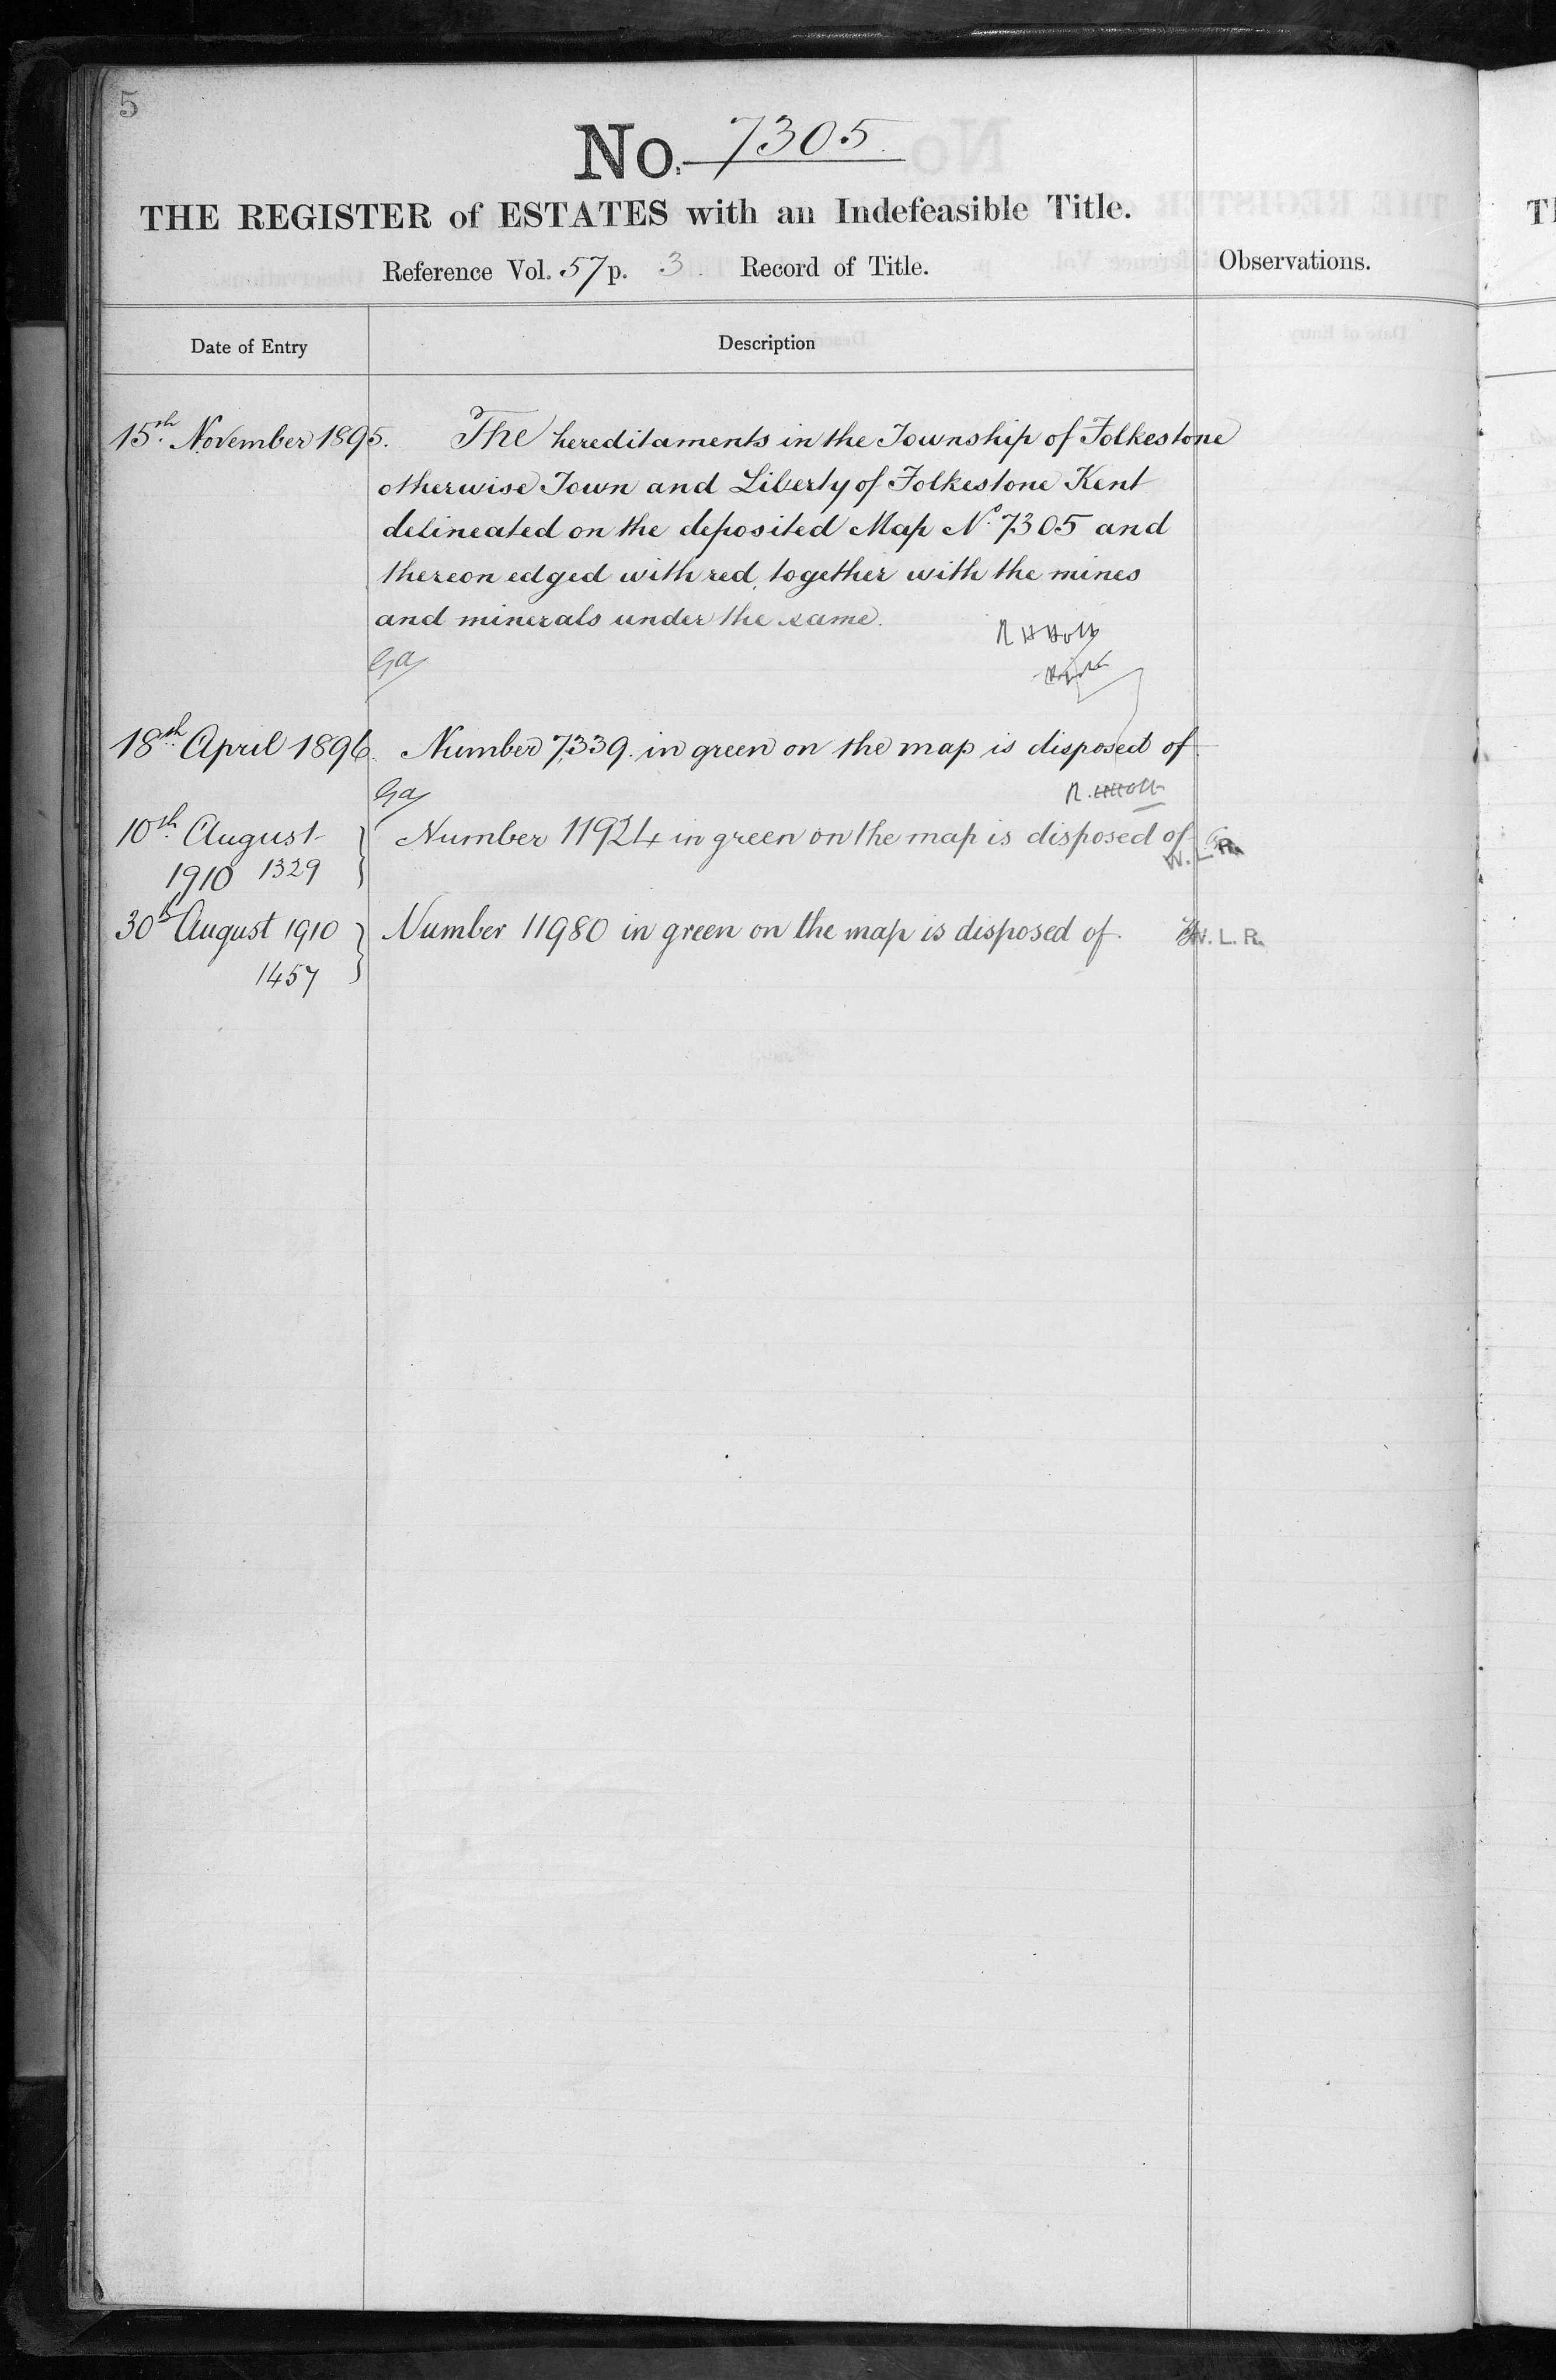 5
No. 7305.
THE REGISTER of ESTATES with an Indefeasible Title.
Reference Vol. 57 p. 3. Record of Title.
Observations.
Date of Entry
Description
15th November 1895. The hereditaments in the Township of Folkestone
otherwise Town and Liberty of Folkestone Kent
delineated on the deposited Map No. 7305 and
thereon edged with red, together with the mines
and minerals under the same.
R H Holt
18th April 1896. Number 7339. in green on the map is disposed of.
R. H Holt
10th August Number 11924 in green on the map is disposed of
W. L. R.
1910 1329
30th August 1910 Number 11980 in green on the map is disposed of. W. L. R.
1457